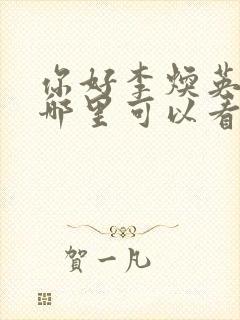 你好李煥英
哪里可以看
賀一凡